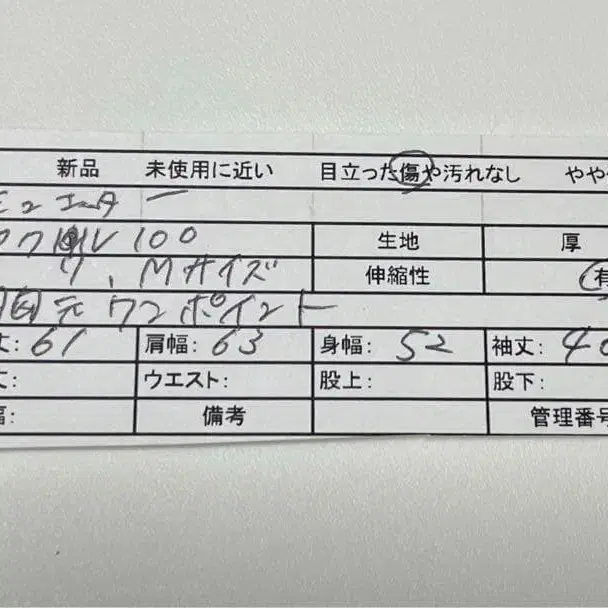 新品 未使用に近い 目立った傷や汚れなし やや
ー
100 生地 厚
Mサイズ 伸縮性 有
元ワンポイント
丈:61 肩幅:63 身幅:52 袖丈:4
丈: ウエスト: 股上: 股下:
幅: 備考 管理番号